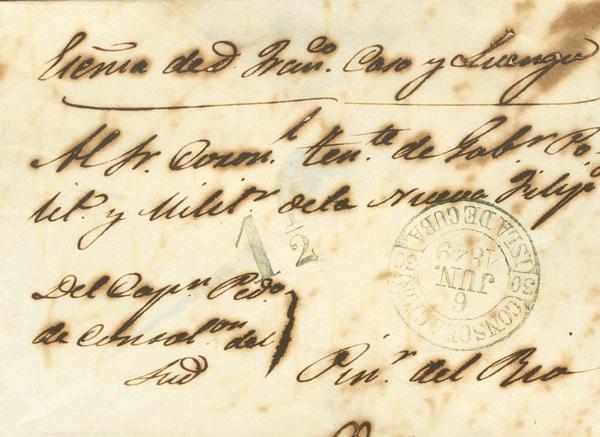 Escña de D. Franco. Caso y Luengo
Al Sr. Coronl. tente. de Gobr. Po
lit. y Militr. de la Nueva Filipa
1 1/2
CONSOLACION
ISLA DE CUBA
6
JUN
1849
Del Capn. Pedo.
de Consolon. del
Sud
Pinr. del Rio